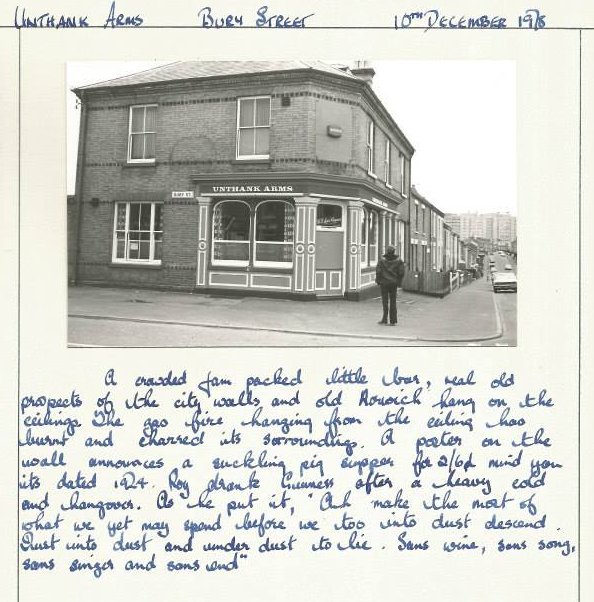 UNTHANK ARMS BURY STREET 10TH DECEMBER 1978
UNTHANK ARMS
BURY ST.
A crowded jam packed little bar, real old
prospects of the city walls and old Norwich hang on the
ceilings. The gas fire hanging from the ceiling has
burnt and charred its sorroundings. A poster on the
wall announces a suckling pig supper for 2/6d mind you
its dated 1924. Roy drank Guinness after a heavy cold
and hangover. As he put it, "Ah make the most of
what we yet may spend before we too into dust descend.
Dust into dust, and under dust to lie. Sans wine, sans song,
sans singer and sans end"